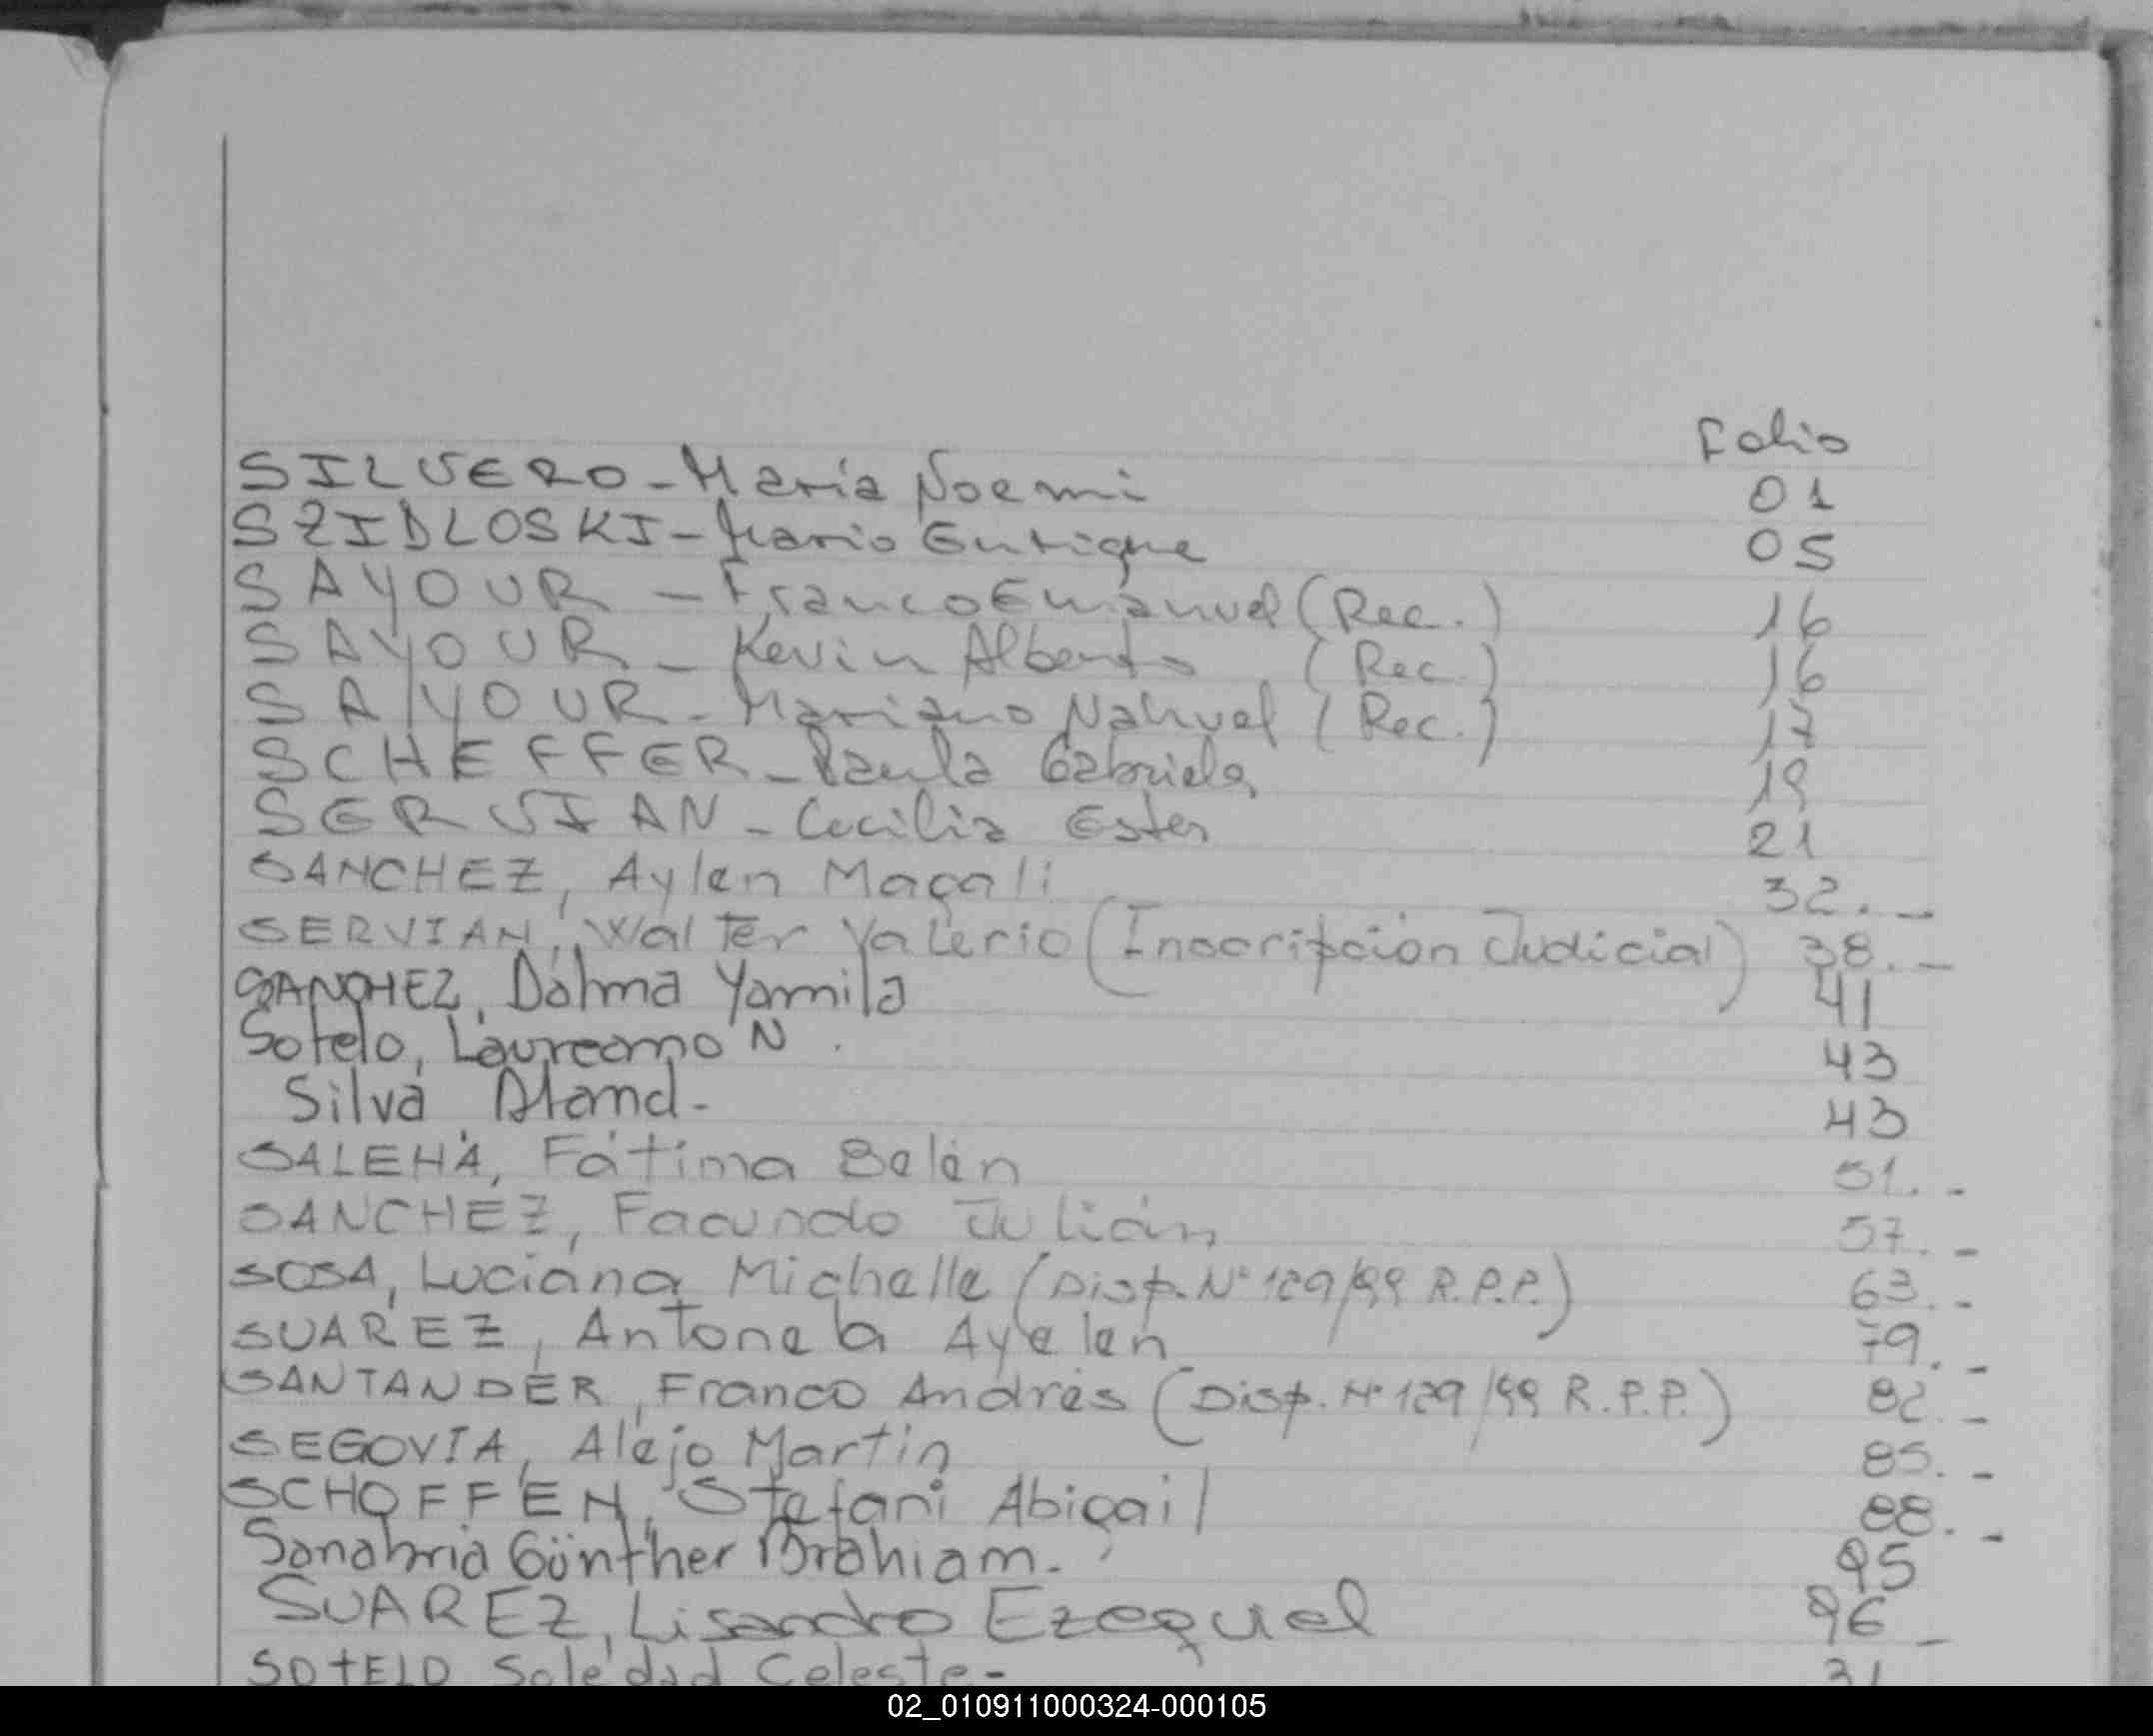 Folio
SILVERO - Maria Noemi 01
SZIDLOSKI - Mario Enrique 05
SAYOUR - Franco Emanuel (Rec.) 16
SAYOUR - Kevin Alberto (Rec.) 16
SAYOUR - Mariano Nahuel (Rec.) 17
SCHEFFER - Paula Gabriela 19
SERVIAN - Cecilia Ester 21
SANCHEZ, Aylen Magali 32.-
SERVIAN, Walter Valerio (Inscripción Judicial) 38.-
SANCHEZ, Dalma Yamila 41
Sotelo, Laureano N. 43
Silva 43
SALEHA, Fátima Belén 51.-
SANCHEZ, Facundo Julián 57.-
SOSA, Luciana Michelle (Disp. N° 129/99 R.P.P.) 63.-
SUAREZ, Antonela Ayelen 79.-
SANTANDER, Franco Andrés (Disp. N° 129/99 R.P.P.) 82.-
SEGOVIA, Alejo Martin 85.-
SCHOFFEN, Stefani Abigail 88.-
Sanabria Günther Brahiam. 95
SUAREZ, Lisandro Ezequel 96 -
SOTELO Soledad Celeste - 31
02_010911000324-000105